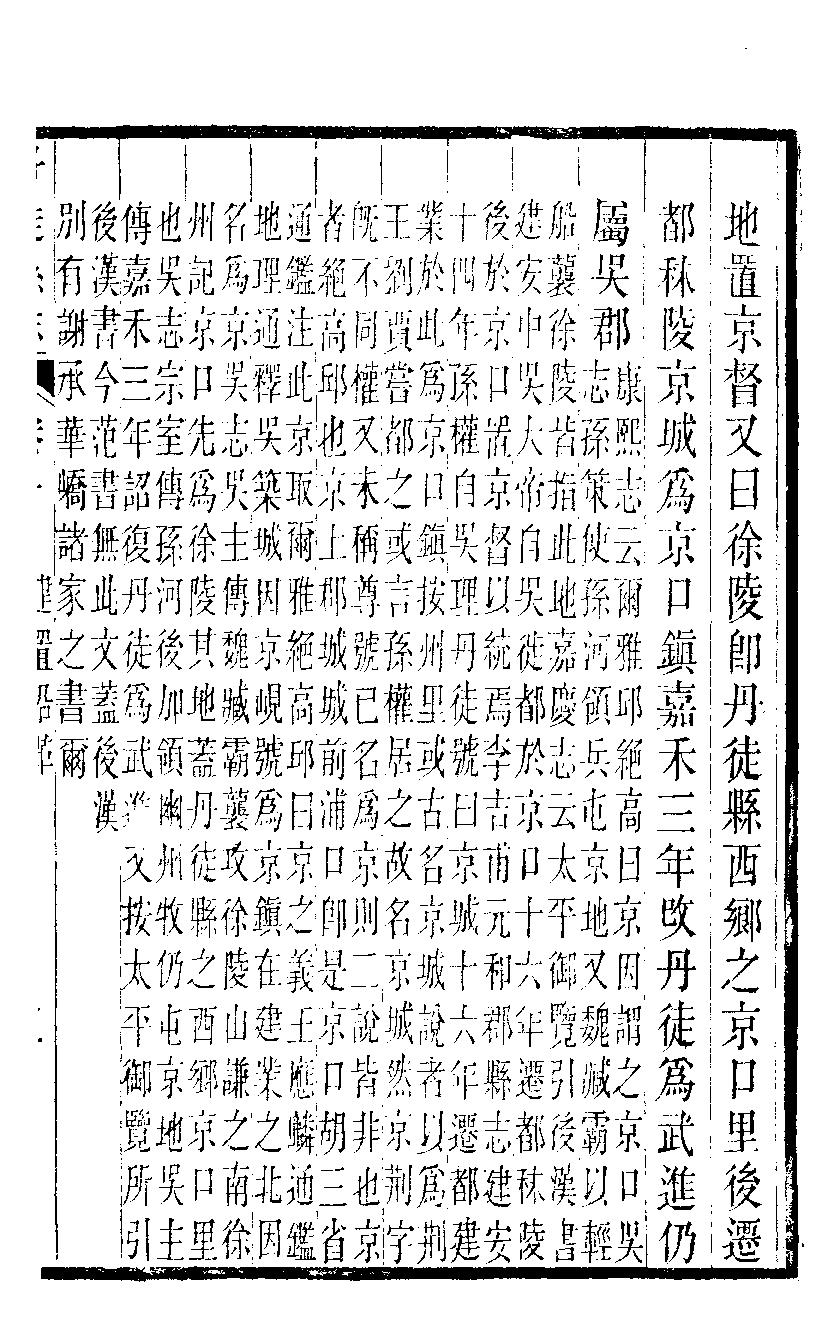 地置京督又曰徐陵卽丹徒縣西鄉之京口里後遷
都秣陵京城爲京口鎮嘉禾三年改丹徒爲武進仍
屬吳郡康熙志云爾雅邱絕高曰京因謂之京口吳
志孫策使孫河領兵屯京地又魏臧霸以輕
船襲徐陵皆指此地嘉慶志云太平御覽引後漢書
建安中吳大帝自吳徙都於京口十六年遷都秣陵
後於京口置京督以統焉李吉甫元和郡縣志建安
十四年孫權自吳理丹徒號曰京城十六年遷都建
業於此爲京口鎮按州里或古名京城說者以爲荆
王劉賈嘗都之或言孫權居之故名京城然京荆字
旣不同權又未稱尊號已名爲京則二說皆非也京
者絕高邱也京上郡城城前浦口卽是京口胡三省
通鑑注此京取爾雅絕高邱曰京之義王應麟通鑑
地理通釋吳築城因京峴號爲京鎮在建業之北因
名爲京吳志吳主傳魏臧霸襲攻徐陵山謙之南徐
州記京口先爲徐陵其地蓋丹徒縣之西鄉京口里
也吳志宗室傳孫河後加領幽州牧仍屯京地吳主
傳嘉禾三年詔復丹徒爲武進 又按太平御覽所引
後漢書今范書無此文蓋後漢
別有謝承華嶠諸家之書爾
建置沿革